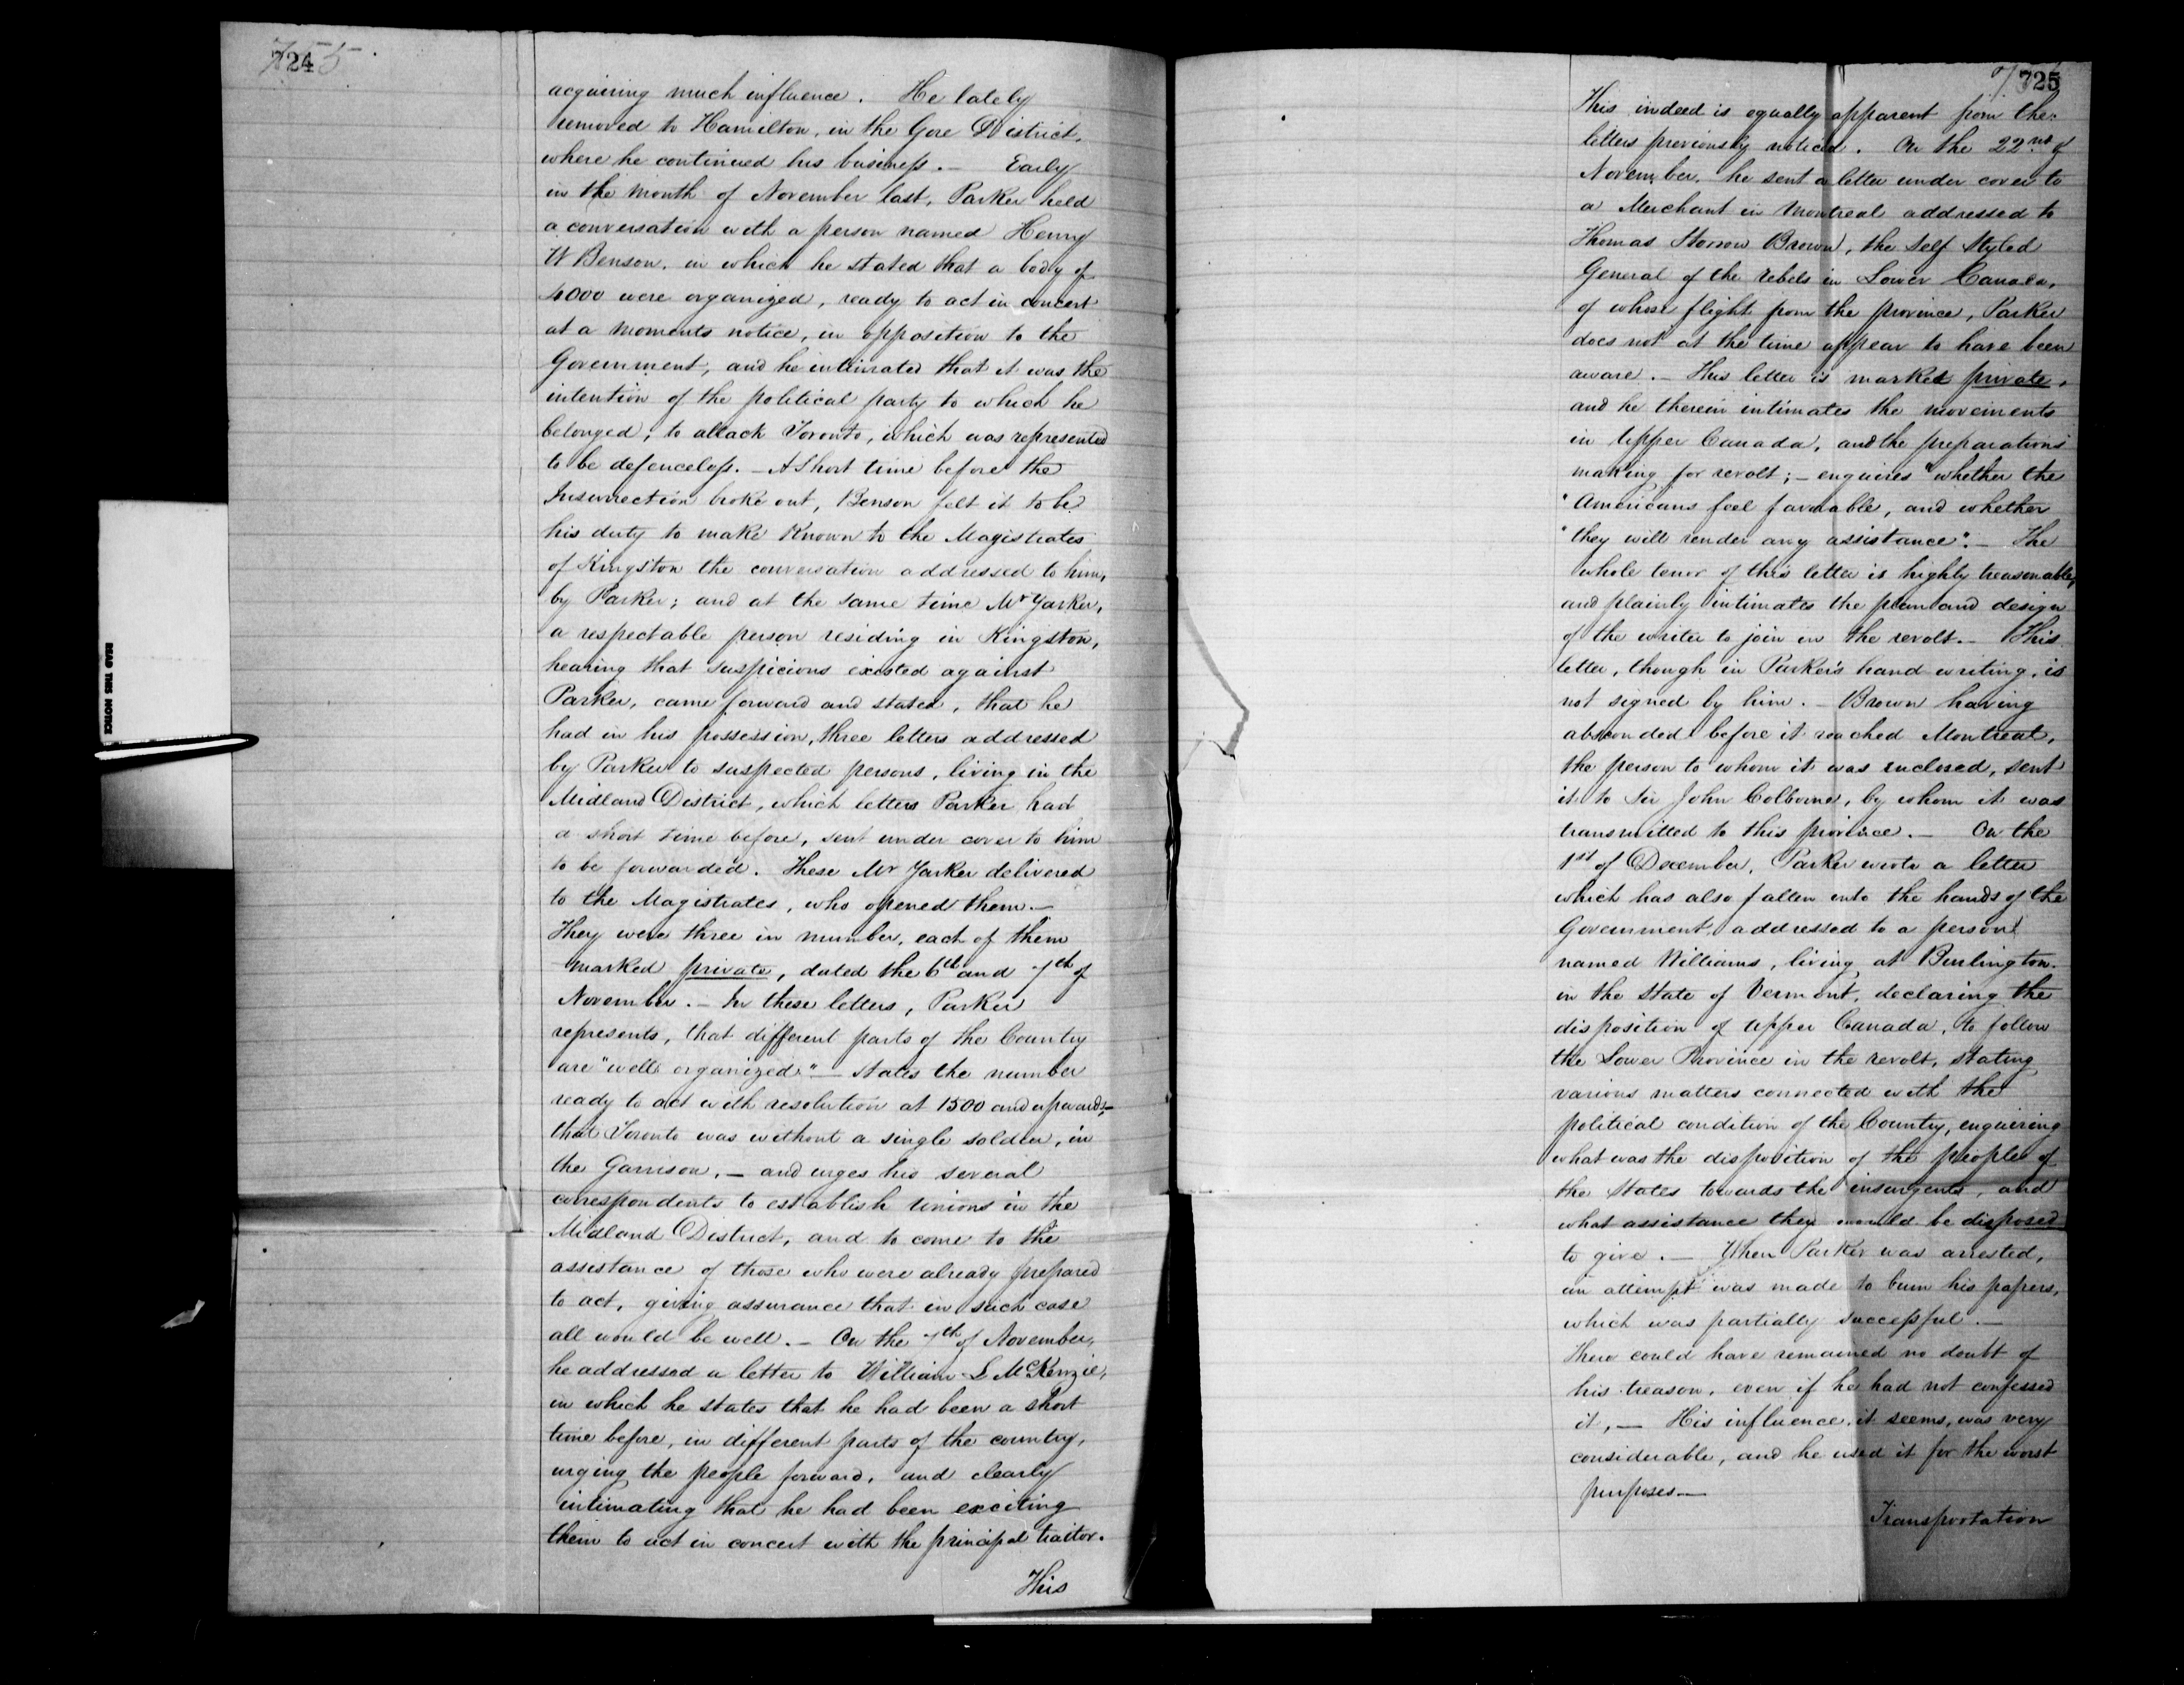 724
acquiring much influence. He lately
removed to Hamilton, in the Gore District,
where he continued his business. — Early
in the month of November last, Parker held
a conversation with a person named Henry
W Benson, in which he stated that a body of
4000 were organized, ready to act in concert
at a moments notice, in opposition to the
Government, and he intimated that it was the
intention of the political party to which he
belonged, to attack Toronto, which was represented
to be defenceless. — A Short time before the
Insurrection broke out, Benson felt it to be
his duty to make Known to the Magistrates
of Kingston the conversation addressed to him,
by Parker; and at the same time Mr Yarker,
a respectable person residing in Kingston,
hearing that suspicions existed against
Parker, came forward and stated, that he
had in his possession, three letters addressed
by Parker to suspected persons, living in the
Midland District, which letters Parker had
a short time before, sent under cover to him
to be forwarded. These Mr Yarker delivered
to the Magistrates, who opened them. —
They were three in number, each of them
marked private, dated the 6th and 7th of
November. — In these letters, Parker
represents, that different parts of the Country
are "well organized" — states the number
ready to act with resolution at 1500 and upwards, —
that Toronto was without a single soldier, in
the Garrison, — and urges his several
correspondents to establish unions in the
Midland District, and to come to the
assistance of those who were already prepared
to act, giving assurance that in such case
all would be well. — On the 7th of November,
he addressed a letter to William L McKenzie,
in which he states that he had been a short
time before, in different parts of the country,
urging the people forward, and clearly
intimating that he had been exciting
them to act in concert with the principal traitor.
This
725
This indeed is equally apparent from the
letters previously noticed. On the 22nd of
November, he sent a letter under cover to
a Merchant in Montreal addressed to
Thomas Storrow Brown, the Self Styled
General of the rebels in Lower Canada,
of whose flight from the province, Parker
does not at the time appear to have been
aware. — This letter is marked private,
and he therein intimates the movements
in Upper Canada, and the preparations
making for revolt; — enquires "whether the
"Americans feel favorable, and whether
"they will render any assistance". — The
whole tenor of this letter is highly treasonable,
and plainly intimates the plan and design
of the writer to join in the revolt. — This
letter, though in Parker's hand writing, is
not signed by him. — Brown having
absconded before it reached Montreal,
the person to whom it was enclosed, sent
it to Sir John Colborne, by whom it was
transmitted to this province. — On the
1st of December, Parker wrote a letter
which has also fallen into the hands of the
Government, addressed to a person
named Williams, living at Burlington
in the State of Vermont, declaring the
disposition of Upper Canada, to follow
the Lower Province in the revolt, stating
various matters connected with the
political condition of the Country, enquiring
what was the disposition of the people of
the States towards the insurgents, and
what assistance they would be disposed
to give. — When Parker was arrested,
an attempt was made to burn his papers,
which was partially successful. —
There could have remained no doubt of
his treason, even if he had not confessed
it, — His influence, it seems, was very
considerable, and he used it for the worst
purposes —
Transportation
READ THIS NOTICE